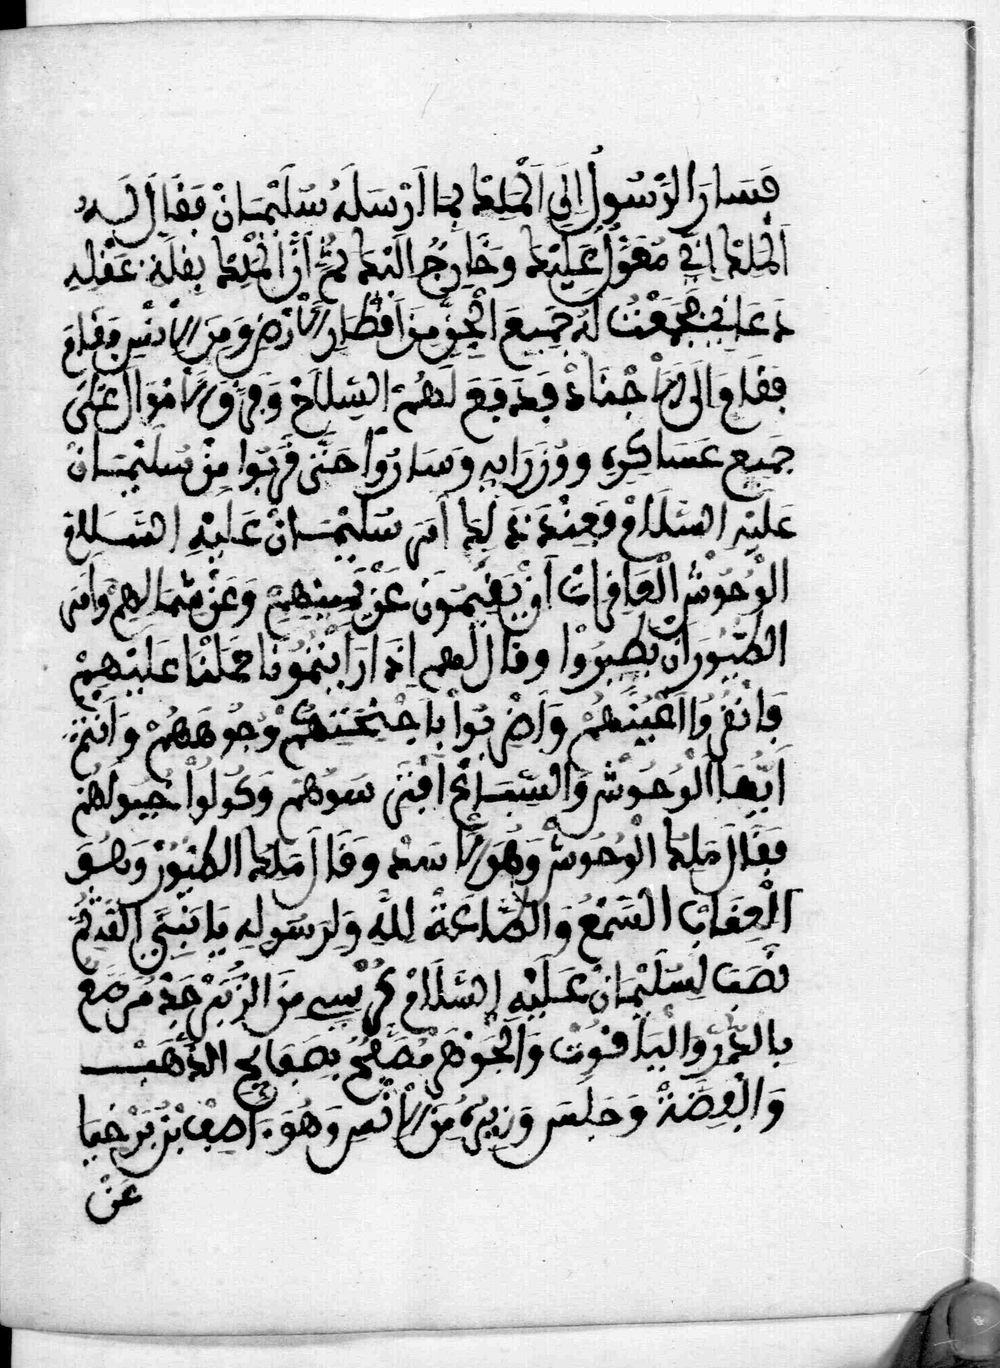 فَسَارَ الرَّسُولُ اِلَى اَلْمَلِكْ بِمَا اَرْسَلَهُ سُلَيْمَانْ فَقَالَ لَهُ
اَلْمَلِكْ اِنِّي مُعَوِّلٌ عَلَيْكَ وَخَارِجٌ اِلَيْكَ ثُمَّ اَنَّ الْمَلِكْ بِقِلَّةِ عَقْلِهِ
دَعَانِي فَجَمَعْتُ لَهُ جَمِيعَ الْجِنِّ مِنَ اَقْطَارِ الْاَرْضِ وَمِنَ الْاِنْسِ وَقَامَ
فَقَامَ وَاَلَى الْاَجْنَادْ فَدَفَعَ لَهُمْ السِّلَاحْ وَفَرَّقَ الْاَمْوَالْ عَلَى
جَمِيعِ عَسَاكِرِهِ وَوُزَرَايِهِ وَسَارُوا حَتَّى قَرُبُوا مِنْ سُلَيْمَانْ
عَلَيْهِ السَّلَامْ فَعِنْدَ ذَلِكَ اَمَرَ سُلَيْمَانْ عَلَيْهِ السَّلَامْ
الْوُحُوشْ الْعَافِرَاتْ اَنْ يَقِيمُونَ عَنْ يَمِينِهِمْ وَعَنْ شِمَالِهِمْ وَاَمَرَ
الطُّيُورَ اَنْ يَطِيرُوا وقال لهم اِذَا رَايْتُمُونَا حَمَلْنَا عَلَيْهِمْ
فَانْقُرُوا اَعْيُنَهُمْ وَاَضْرِبُوا بِاَجْنِحَتِكُمْ وُجُوهَهُمْ وَاَنْتُمْ
اَيُّهَا الْوُحُوشْ وَالسِّبَاعْ اَفْتَرِسُوهُمْ وَكُولُوا خُيُولَهُمْ
فَقَالَ مَلِكْ الْوُحُوشْ وَهُوَ الْاَسَدْ وَقَالَ مَلِكْ الطُّيُورْ وَهُوَ
الْعِقَابْ السَّمْعُ وَالطَّاعَةْ لِلَّهِ وَلِرَسُولِهِ يَا نَبِيَّ اللَّهِ ثُمَّ
نُصِبَ لِسُلَيْمَانْ عَلَيْهِ السَّلَامْ كُرْسِي مِنَ الزُّبَرْجَدْ مُرَصَّعْ
بِالدُّرِّ وَالْيَاقُوتْ وَالْجَوْهَرْ مُصَفَّحْ بِصَفَايِحِ الذَّهَبْ
وَالْفِضَّةْ وَجَلَسَ وَزِيرُهُ مِنَ الْاِنْسِ وَهُوَ اَصِفْ بْنُ بَرْخِيَا
عَنْ